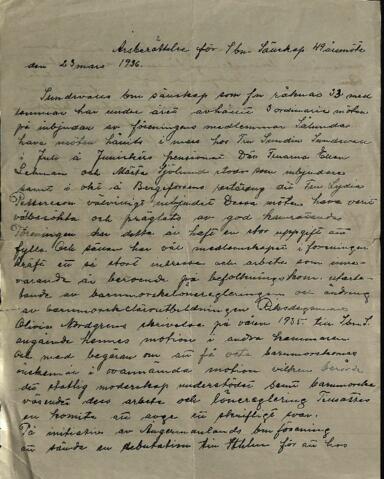 Årsberättelse för Sbm Sänskap 49 årsmöte
den 23 mars 1936.
Sundsvalls bm sänskap som f.n. räknas 33 med
lemmar har under året avhållit 3 ordinarie möten
på inbjudan av föreningens medlemmar Sålunda
hava möten hållits i mars hos Fru Sundin Sundsvall
i Juli å pensionat Där Fruarna Ellen
Lehman och Märta Sjölund stodo som inbjudare
samt i okt å Bergeforsens dit Fru Lydia
Pettersson välvilligt inbjudit Dessa möten hava varit
välbesökta och präglats av god kamratanda
Föreningen har detta år haft en stor uppgift att
fylla. Och såvan har väl medlemskapet i föreningen
på befolknings
av barnmorskelöneregleringen och ändring
av barnmorskelärutbildningen Riksdagsman
Olivia Nordgren skrevs på våren 1935 till Sbm S.
angående hennes motion i andra kammaren
och med begäran om att få veta barnmorskornas
önskemål i ovannämda motion vilken berörde
det statlig moderskap understödet samt barnmorske
väsendet dess arbete och lönereglering Tillsattes
en komite att avge ett skriftligt svar.
På initiativ av Ångermanlands bm förening
att sända en deputation till Sthlm för att hos